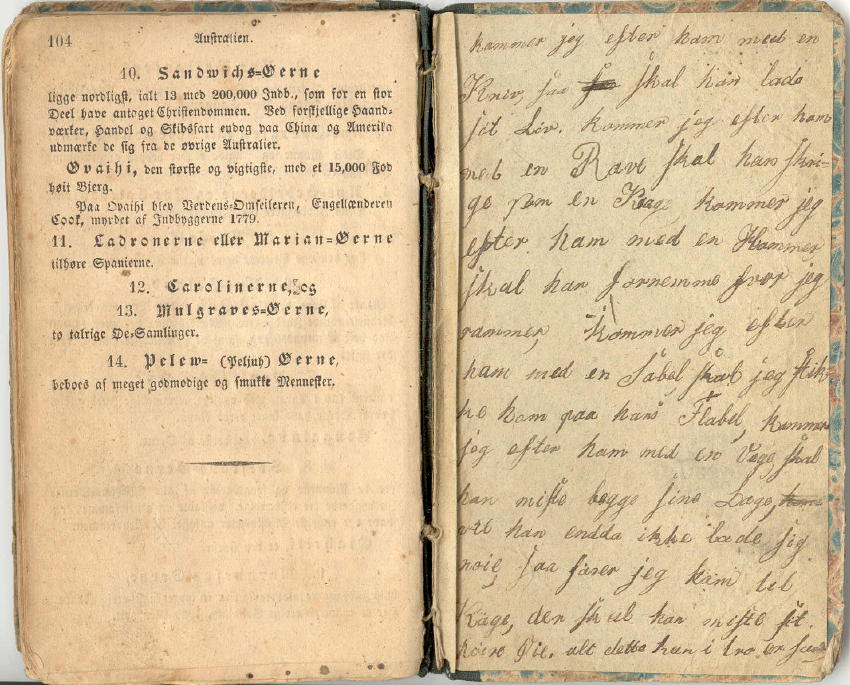 104
Australien.
10. Sandwichs=Øerne
ligge nordligst, ialt 13 med 200,000 Indb., som for en stor
Deel have antaget Christendommen. Ved forskjellige Haand=
værker, Handel og Skibsfart endog paa China og Amerika
udmærke de sig fra de øvrige Australier.
Ovaihi, den største og vigtigste, med et 15,000 Fod
høit Bjerg.
Paa Ovaihi blev Verdens=Omseileren, Engellænderen
Cook, myrdet af Indbyggerne 1779.
11. Ladronerne eller Marian=Øerne
tilhøre Spanierne.
12. Carolinerne, og
13. Mulgraves=Øerne,
to talrige Øe=Samlinger.
14. Pelew= (Peljuh) Øerne,
beboes af meget godmodige og smukke Mennesker.
kommer jeg efter ham med en
Kniv, saa skal han lade
sit Liv. kommer jeg efter ham
med en Rave skal han skri-
ge som en Krage kommer jeg
efter ham med en Hammer
skal han fornemme hvor jeg
rammer, Kommer jeg efter
ham med en Sabel skal jeg stik-
ke ham paa hans Flabel, kommer
jeg efter ham med en Vøge, skal
han miste begge sine Øage,
vil han endda ikke lade sig
noie, saa fører jeg ham til
Køge, der skal han miste sit
høire Øie. alt dette han i tro er